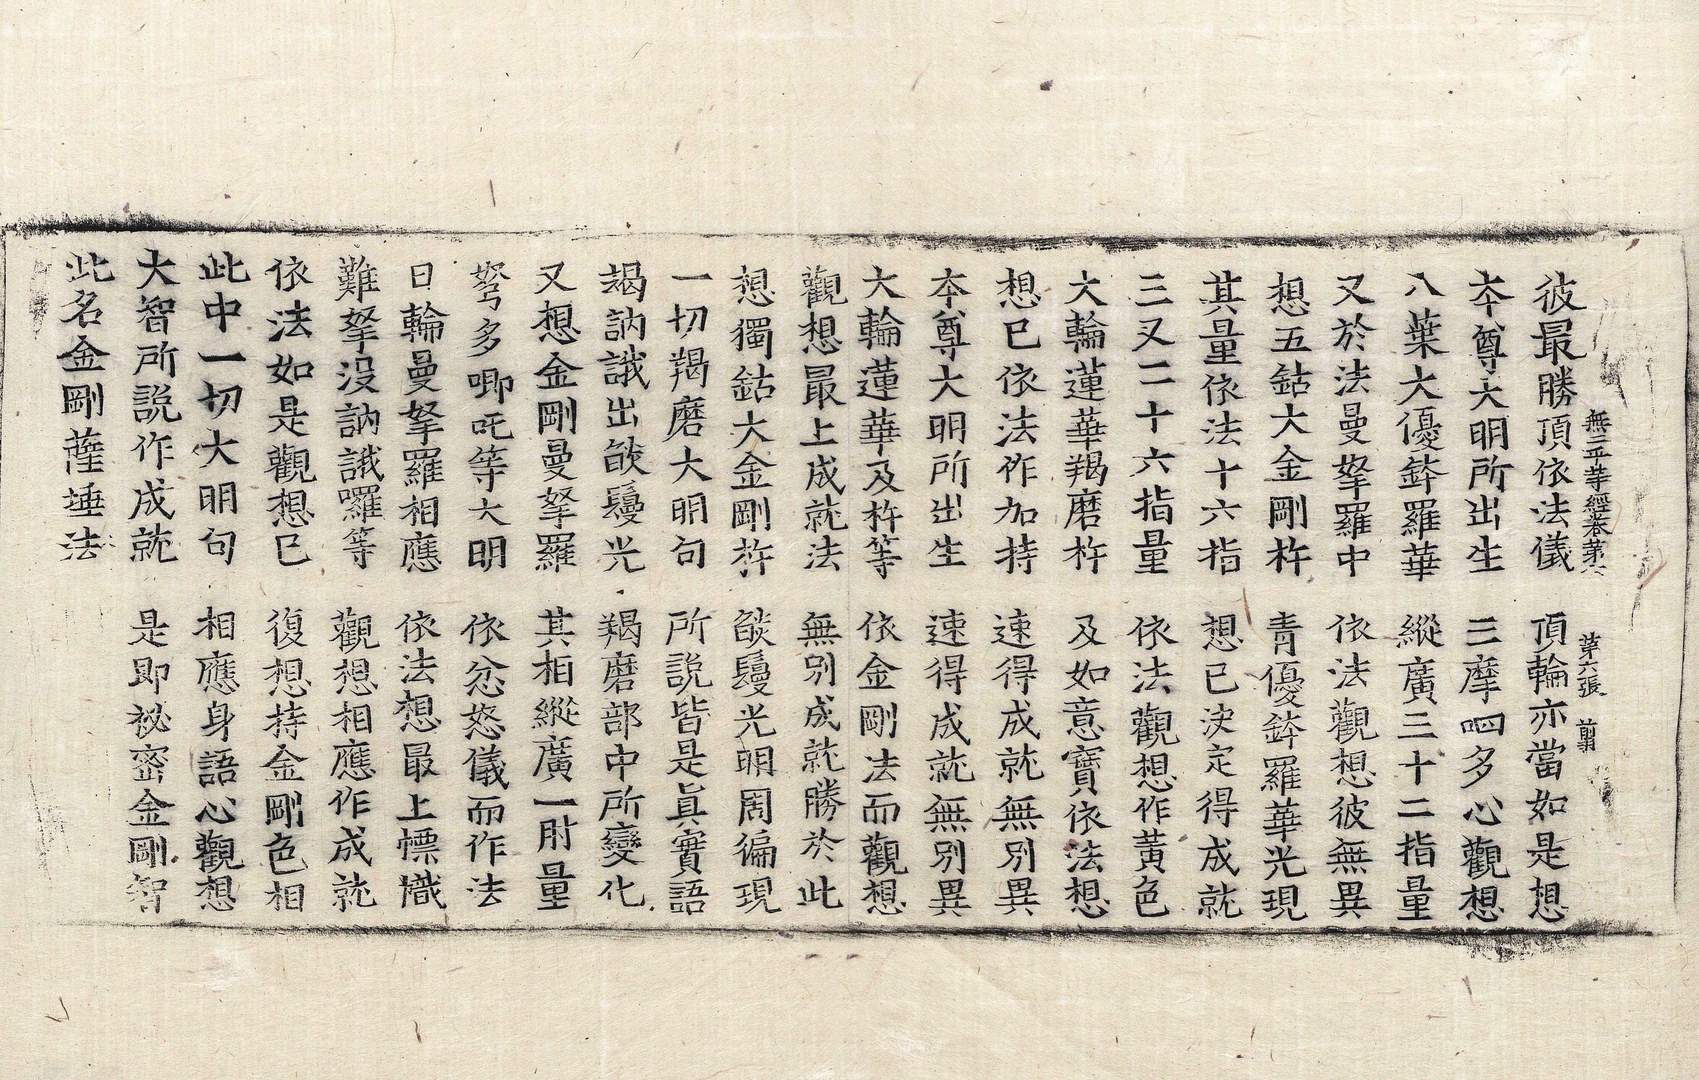 無二平等經卷第六 第六張 翦
彼最勝頂依法儀 頂輪亦當如是想
本尊大明所出生 三摩呬多心觀想
八葉大優鉢羅華 縱廣三十二指量
又於法曼拏羅中 依法觀想彼無異
想五鈷大金剛杵 青優鉢羅華光現
其量依法十六指 想已決定得成就
三叉二十六指量 依法觀想作黃色
大輪蓮華羯磨杵 及如意寶依法想
想已依法作加持 速得成就無別異
本尊大明所出生 速得成就無別異
大輪蓮華及杵等 依金剛法而觀想
觀想最上成就法 無別成就勝於此
想獨鈷大金剛杵 燄鬘光明周徧現
一切羯磨大明句 所說皆是眞實語
謁訥誐出燄鬘光 羯磨部中所變化
又想金剛曼拏羅 其相縱廣一肘量
弩多唧吒等大明 依忿怒儀而作法
日輪曼拏羅相應 依法想最上幖幟
難拏沒訥誐囉等 觀想相應作成就
依法如是觀想已 復想持金剛色相
此中一切大明句 相應身語心觀想
大智所說作成就 是即祕密金剛智
此名金剛薩埵法